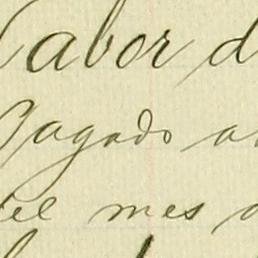 Labor d
Pagado a
del mes d